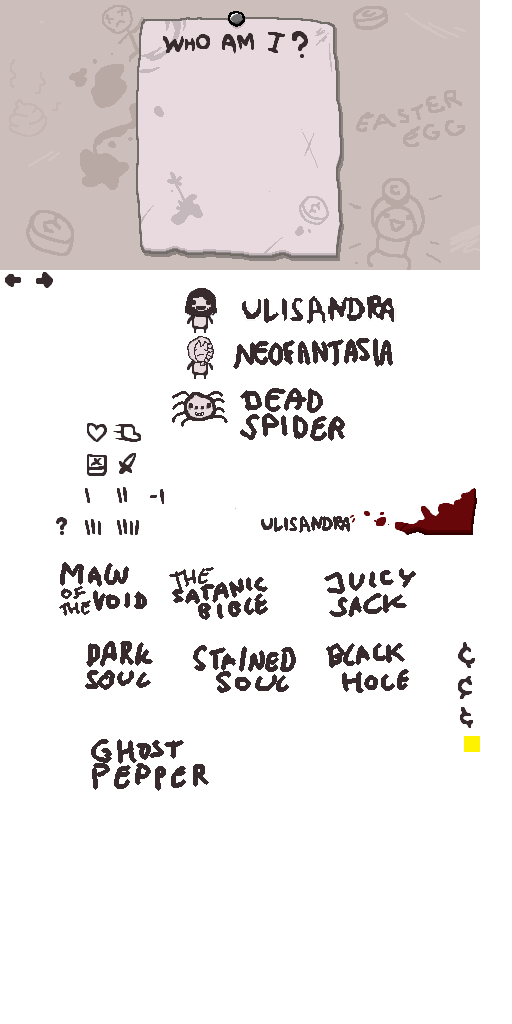 WHO AM I?
EASTER
EGG
ULISANDRA
NEOFANTASIA
DEAD
SPIDER
-1
?
ULISANDRA
MAW
OF
THE VOID
THE
SATANIC
BIBLE
JUICY
SACK
DARK
SOUL
STAINED
SOUL
BLACK
HOLE
¢
¢
¢
GHOST
PEPPER